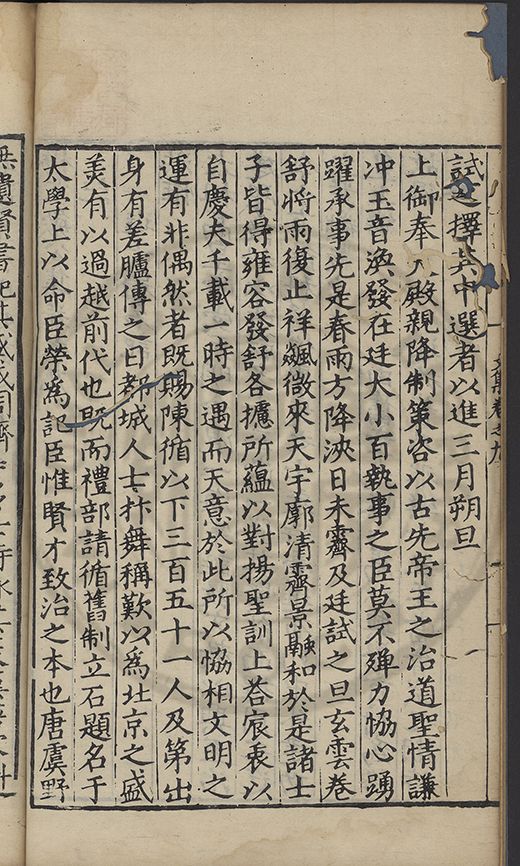 文集卷之九
試擇其中選者以進三月朔旦
上御奉天殿親降制策咨以古先帝王之治道聖情謙
冲玉音渙發在廷大小百執事之臣莫不殫力恊心踴
躍承事先是春雨方降浹日未霽及廷試之旦玄雲卷
舒將雨復止祥飈微來天宇廓清霽景融和於是諸士
子皆得雍容發舒各攄所蘊以對揚聖訓上荅宸衷以
自慶夫千載一時之遇而天意於此所以恊相文明之
運有非偶然者既賜陳循以下三百五十一人及第出
身有差臚傳之日都城人士抃舞稱歎以為北京之盛
美有以過越前代也既而禮部請循舊制立石題名于
太學上以命臣榮為記臣惟賢才致治之本也唐虞野
無遺賢書紀其盛成周濟